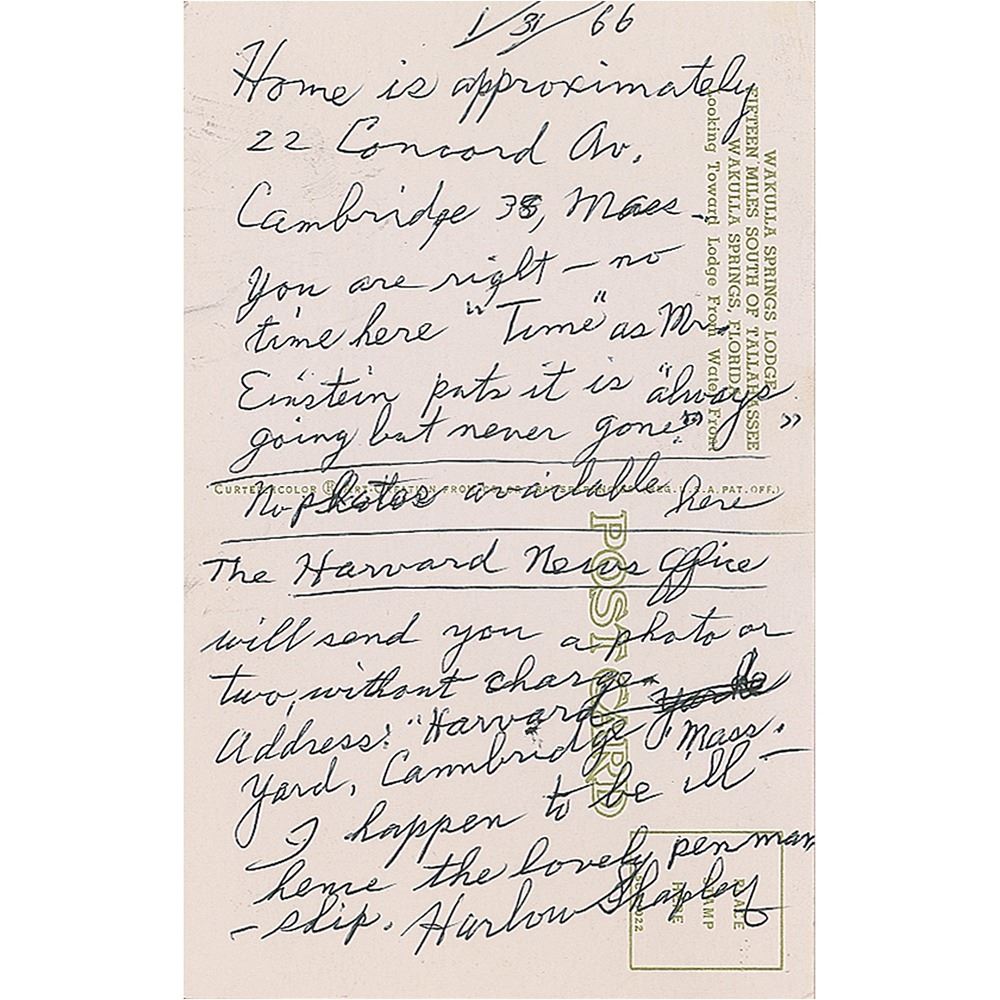 1/31/66
Home is approximately
22 Concord Av.
Cambridge 38, Mass.
You are right – no
time here "Time" as Mr.
Einstein puts it is "always
going but never gone"
No photos available here
The Harvard News Office
will send you a photo or
two, without charge.
Address: "Harvard
Yard, Cambridge, Mass.
I happen to be ill –
hence the lovely penman
-ship. Harlow Shapley
WAKULLA SPRINGS LODGE
FIFTEEN MILES SOUTH OF TALLAHASSEE
WAKULLA SPRINGS, FLORIDA
Looking Toward Lodge From Water Front
CURTEICHCOLOR ® ART-CREATION FROM COLOR TRANSPARENCY (REG. U.S.A. PAT. OFF.)
POST CARD
PLACE
STAMP
HERE